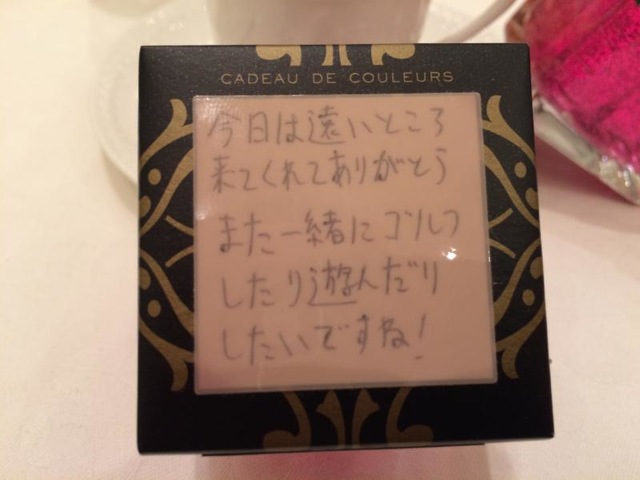 CADEAU DE COULEURS
今日は遠いところ
来てくれてありがとう
また一緒にゴルフ
したり遊んだり
したいですね!